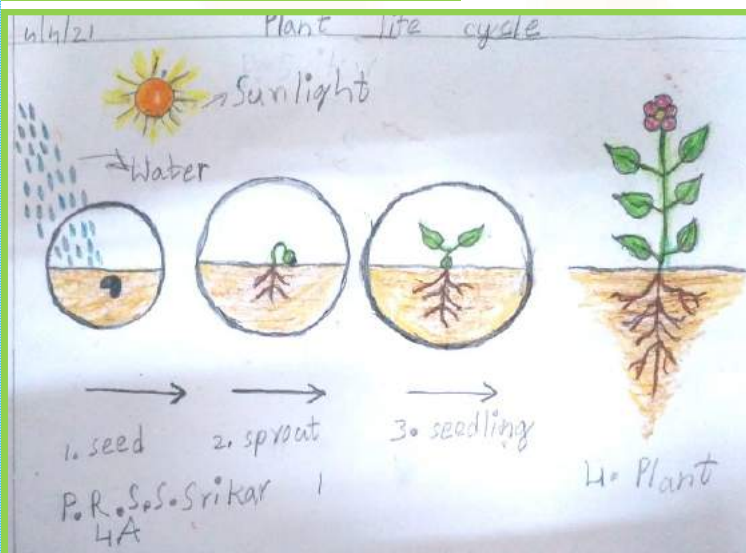 4/4/21 Plant life cycle
Sunlight
Water
1. seed 2. sprout 3. seedling
4. Plant
P.R.S.S.Srikar
4A